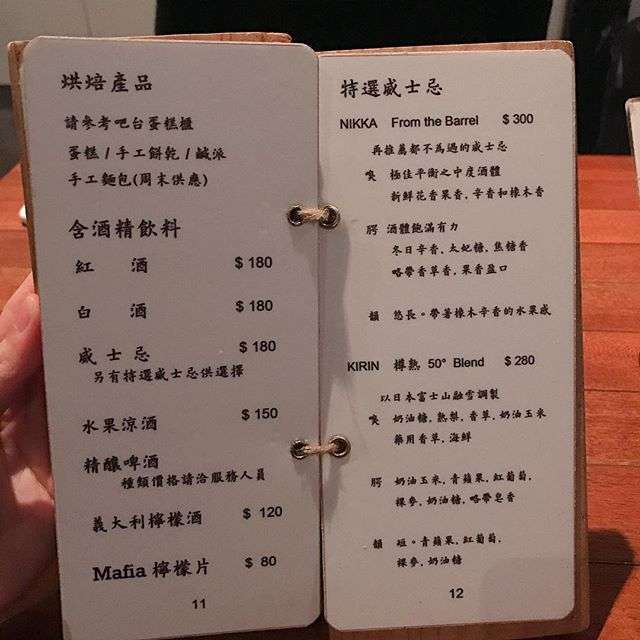 烘焙產品
請參考吧台蛋糕櫃
蛋糕 / 手工餅乾 / 鹹派
手工麵包(周末供應)
含酒精飲料
紅 酒 $ 180
白 酒 $ 180
威 士 忌 $ 180
另有特選威士忌供選擇
水果涼酒 $ 150
精釀啤酒
種類價格請洽服務人員
義大利檸檬酒 $ 120
Mafia 檸檬片 $ 80
11
特選威士忌
NIKKA From the Barrel $ 300
再推薦都不為過的威士忌
嗅 極佳平衡之中度酒體
新鮮花香果香, 辛香和橡木香
腭 酒體飽滿有力
冬日辛香, 太妃糖, 焦糖香
略帶香草香, 果香盈口
韻 悠長。帶著橡木辛香的水果感
KIRIN 樽熟 50° Blend $ 280
以日本富士山融雪調製
嗅 奶油糖, 熟梨, 香草, 奶油玉米
藥用香草, 海鮮
腭 奶油玉米, 青蘋果, 紅葡萄,
裸麥, 奶油糖, 略帶皂香
韻 短。青蘋果, 紅葡萄,
裸麥, 奶油糖
12